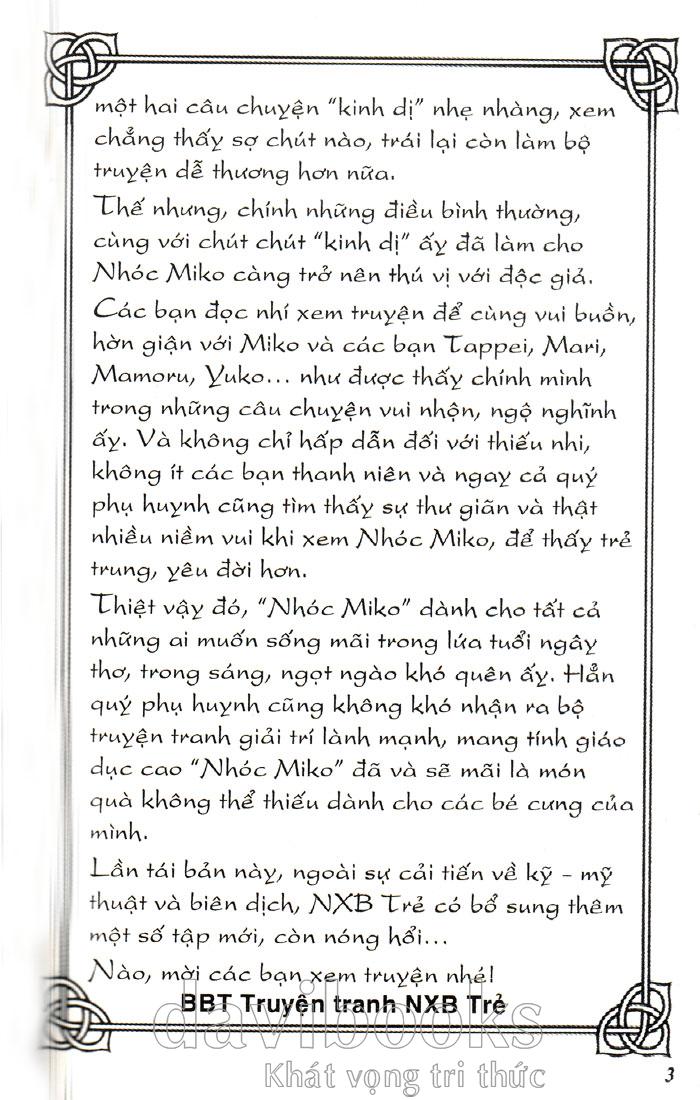 một hai câu chuyện “kinh dị” nhẹ nhàng, xem
chẳng thấy sợ chút nào, trái lại còn làm bộ
truyện dễ thương hơn nữa.
Thế nhưng, chính những điều bình thường,
cùng với chút chút “kinh dị” ấy đã làm cho
Nhóc Miko càng trở nên thú vị với độc giả.
Các bạn đọc nhí xem truyện để cùng vui buồn,
hờn giận với Miko và các bạn Tappei, Mari,
Mamoru, Yuko... như được thấy chính mình
trong những câu chuyện vui nhộn, ngộ nghĩnh
ấy. Và không chỉ hấp dẫn đối với thiếu nhi,
không ít các bạn thanh niên và ngay cả quý
phụ huynh cũng tìm thấy sự thư giãn và thật
nhiều niềm vui khi xem Nhóc Miko, để thấy trẻ
trung, yêu đời hơn.
Thiệt vậy đó, “Nhóc Miko” dành cho tất cả
những ai muốn sống mãi trong lứa tuổi ngây
thơ, trong sáng, ngọt ngào khó quên ấy. Hẳn
quý phụ huynh cũng không khó nhận ra bộ
truyện tranh giải trí lành mạnh, mang tính giáo
dục cao “Nhóc Miko” đã và sẽ mãi là món
quà không thể thiếu dành cho các bé cưng của
mình.
Lần tái bản này, ngoài sự cải tiến về kỹ - mỹ
thuật và biên dịch, NXB Trẻ có bổ sung thêm
một số tập mới, còn nóng hổi...
Nào, mời các bạn xem truyện nhé!
BBT Truyện tranh NXB Trẻ
davibooks
Khát vọng tri thức
3